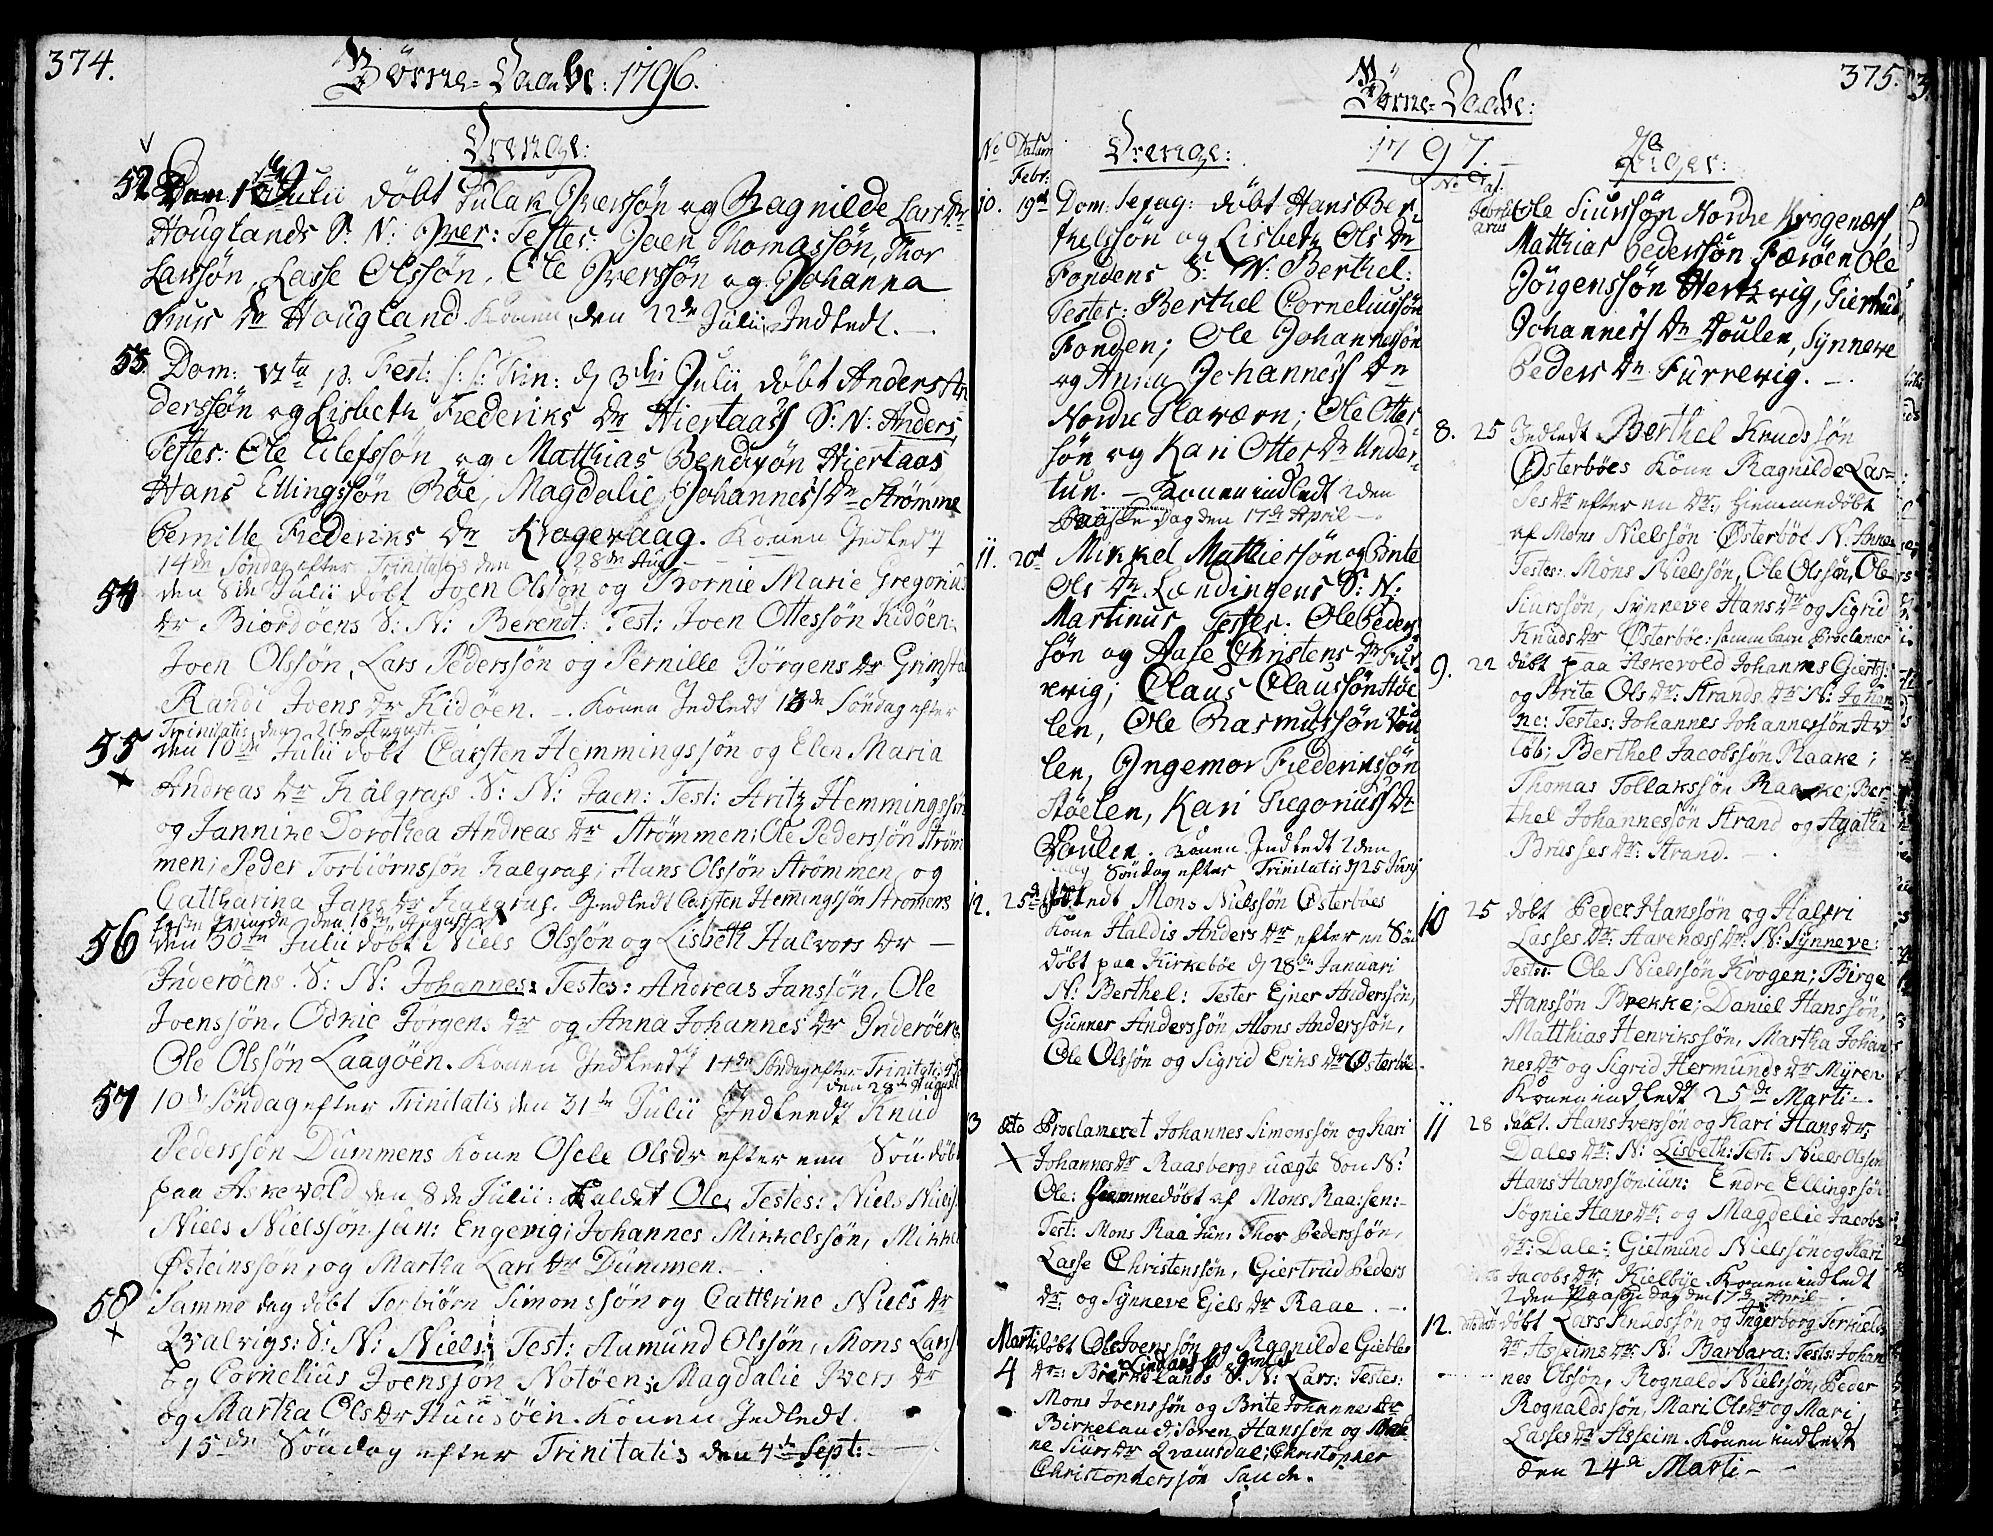 374.
Börne-Daabe: 1796.
Drenge:
52 Dom: Julii döbt Iversön og Ragnilde Lars Dr
Houglands S: N: Iver: Testes: Joen Thomassön, Thor
Larssön, Lasse Olssön, Ole Iverssön og Johanna
Dr Hougland. Konen den 22de Julii Indledt. —
53 Dom: p: Fest: S: S: Trin: d 3die Julii döbt Anders An
derssön og Lisbeth Frederiks Dr Hiertaas S: N: Anders
Testes: Ole Eilefssön og Matthias Hiertaas
Hans Ellingssön Röe, Magdalie Johannes Dr Strömme
Pernille Frederiks Dr Kragevaag. Konen Indledt
14de Söndag efter Trinitatis den 28de Aug:
54 den 8de Julii döbt Joen Olsson og Tornie Marie Gregorius
dr Biordöens S: N: Berendt: Test: Joen Ottessön Kidöen:
Joen Olssön, Lars Pederssön og Pernille Jörgens Dr Grimsta
Randi Joens Dr Kidöen. — Konen Indledt 13de Söndag efter
Trinitatis den 21de Auguste
55 den 10de Julii döbt Carsten Hemmingssön og Elen Maria
Andreas Dr Kalgrafs S: N: Jaen: Test: Fritz Hemmingssön
og Jannike Dorothea Andreas Dr Strömmen; Ole Pederssön Ström
men; Peder Torbiörnssön Kalgraf; Hans Olssön Strömmen og
Catharina Jans Dr Kalgraf. Indledt Carsten Hemingssön Strömens
56 den 30te Julii döbt Niels Olssön og Lisbeth Halvors Dr —
Inderöens S: N: Johannes: Testes: Andreas Janssön, Ole
Joenssön, Odnie Jorgens Dr og Anna Johannes Dr Inderöen
Ole Olssön Laagöen. Konen Indledt 14de Söndag efter Trinitatis
den 28de August
57 10de Söndag efter Trinitatis den 31te Julii Indleedt Knud
Pederssön Dummens Kone Osele Olsdr efter een Sön döbt
paa Askevold den 8de Julii: kaldet Ole: Testes: Niels Niels
Niels Nielssön jun: Engevig; Johannes Mikkelssön, Mikkel
Östeinssön, og Martha Lars Dr Dummen.
58 Samme dag döbt Torbiörn Simonssön og Catthrine Niels Dr
Qvalvigs: S: N: Niels: Test: Aamund Olssön, Mons Lars
og Cornelius Joenssön Notöen; Magdalie Ivers Dr
og Martha Ols Dr Huusöen. Konen Indledt
15de Söndag efter Trinitatis den 4de Sept: —
375.
Börne-Daabe:
1797.
No Datum Drenge:
Febr:
10. 19de Dom: Sexag: döbt Hans Ber
thelssön og Lisbeth Ols Dr
Fondens S: N: Berthel:
Testes: Berthel Corneliussön
Fonden; Ole Johannessön
og Anna Johannes Dr
Nordre Staværn; Ole Otter
sön og Kari Otters Dr Under
tun. — Konen indledt 2den
Paaske Dag den 17de April —
11. 20de Mikkel Matthiessön og Brite
Ols Dr Lændingens S: N:
Martinus Testes. Ole Peders
sön og Aase Christens Dr Fur
revig; Claus Claussön Stöe
len, Ole Rasmussön Dou
len, Ingemor Frederikssön
Stöelen, Kari Gregorius Dr
Doulen. Konen Indledt 2den
Söndag efter Trinitatis d 25 Junj
12. 25de Indledt Mons Nielssön Österböes
Kone Haldis Anders Dr efter en Sön
döbt paa Kirkeböe d 28de Januari
N: Berthel: Tester Ejner Anderssön,
Gunner Anderssön, Mons Anderssön,
Ole Olssön og Sigrid Eriks Dr Österböe.
13 dito Proclameret Johannes Simonssön og Kari
Johannes Dr Raasbergs uægte Sön N:
Ole: Hiemmedöbt af Mons Raa: sen: —
Test: Mons Raa Jun, Thor Pederssön,
Lasse Christenssön, Giertrud Peders
Dr: og Synneve Ejels Dr Raae. —
Marti döbt Ole Joenssön og Ragnilde Giebles
4 Dr: Birkelands S: N: Lars: Testes:
Mons Joenssön og Brite Johannes Dr
Birkeland; Sören Hanssön og
ne Siurs Dr Qvamsdal; Christopher
Christopherssön Sande.
No Dat. Piger:
Februarius Ole Siurssön Nordre Krogenæs,
Matthias Pederssön Færöen, Ole
Jörgenssön Hertzvig, Giertrud
Johannes Dr Doulen, Synneve
Peders Dr Furrevig. —
8. 25 Indledt Berthel Knudssön
Österböes Kone Ragnilde Las-
ses Dr efter en Dr, Hiemmedöbt
af Mons Nielssön Österböe N: Anne
Testes: Möns Nielssön, Ole Olssön, Ole
Siurssön, Synneve Hans Dr og Sigrid
Knuds Dr Österböe: samme barn Proclamer
9. 22 döbt paa Askevold Johannes Giertz:
og Brite Ols Dr: Strands Dr N: Johan
ne: Testes: Johannes Johannessön
löb; Berthel Jacobssön Raake;
Thomas Tollakssön Raake; Ber
thel Johannessön Strand og Agatha
Brusses Dr: Strand.
10 25 döbt Peder Hanssön og Halfri
Lasses Dr: Aarenæs Dr: N: Synneve:
Testes: Ole Nielssön Krogen; Birge
Hanssön Brekke; Daniel Hanssön,
Matthias Henrikssön, Martha Johan
nes Dr og Sigrid Hermunds Dr Myren
Konen indledt 25de Marti —
11 28 döbt. Hans Iverssön og Kari Hans Dr:
Dales Dr: N: Lisbeth: Test: Niels Olssön
Hans Hanssön iun: Endre Ellingssön
Sognie Hans Dr: og Magdelie Jacobs
Dr: Dale: Gietmund Nielssön og Kari
Jacobs Dr: Kielbye. Konen indledt
2den Paaske dag den 17de April —
12. dito döbt Lars Knudssön og Ingerborg Terkields
Dr Asseims Dr: N: Barbara: Tests: Johan
nes Olssön, Rognald Nielssön, Peder
Rognaldssön, Mari Ols Dr og Mari
Lasses Dr Asseim. Konen indledt
den 24de Marti —